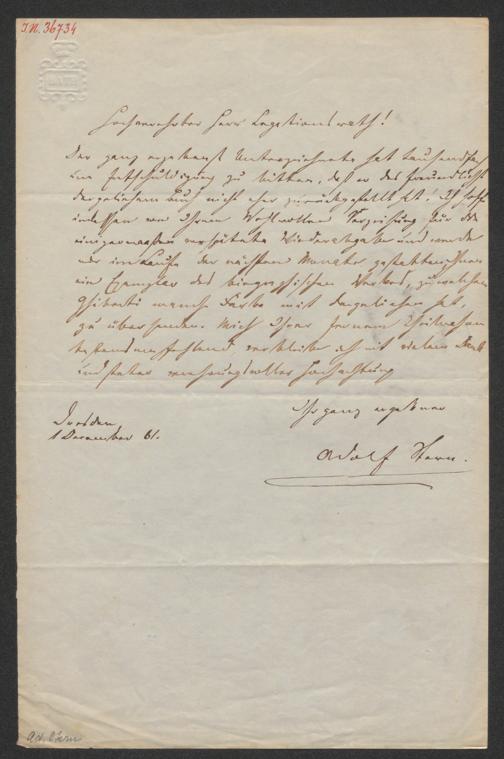 I.N. 36734
BATH
Hochverehrter Herr Legationsrath!
Der ganz ergebenst Unterzeichnete hat tausendfach
um Entschuldigung zu bitten, daß er das freundlichst
dargeliehene Buch nicht eher zurückgestellt hat! Ich hoffe
indessen von Ihrem Wohlwollen Verzeihung für die
einigermaßen verspätete Wiederabgabe und werde
mir im Laufe der nächsten Monate gestatten Ihnen
ein Exemplar des biographischen Werkes, zu welchem
Ghiberti manche Farbe mit dargeliehen hat,
zu übersenden. Mich Ihrer fernern Theilnahme
bestens empfehlend verbleibe ich mit vielem Dank
und steter verehrungsvoller Hochachtung
Ihr ganz ergebner
Dresden
1 December 61.
Adolf Stern.